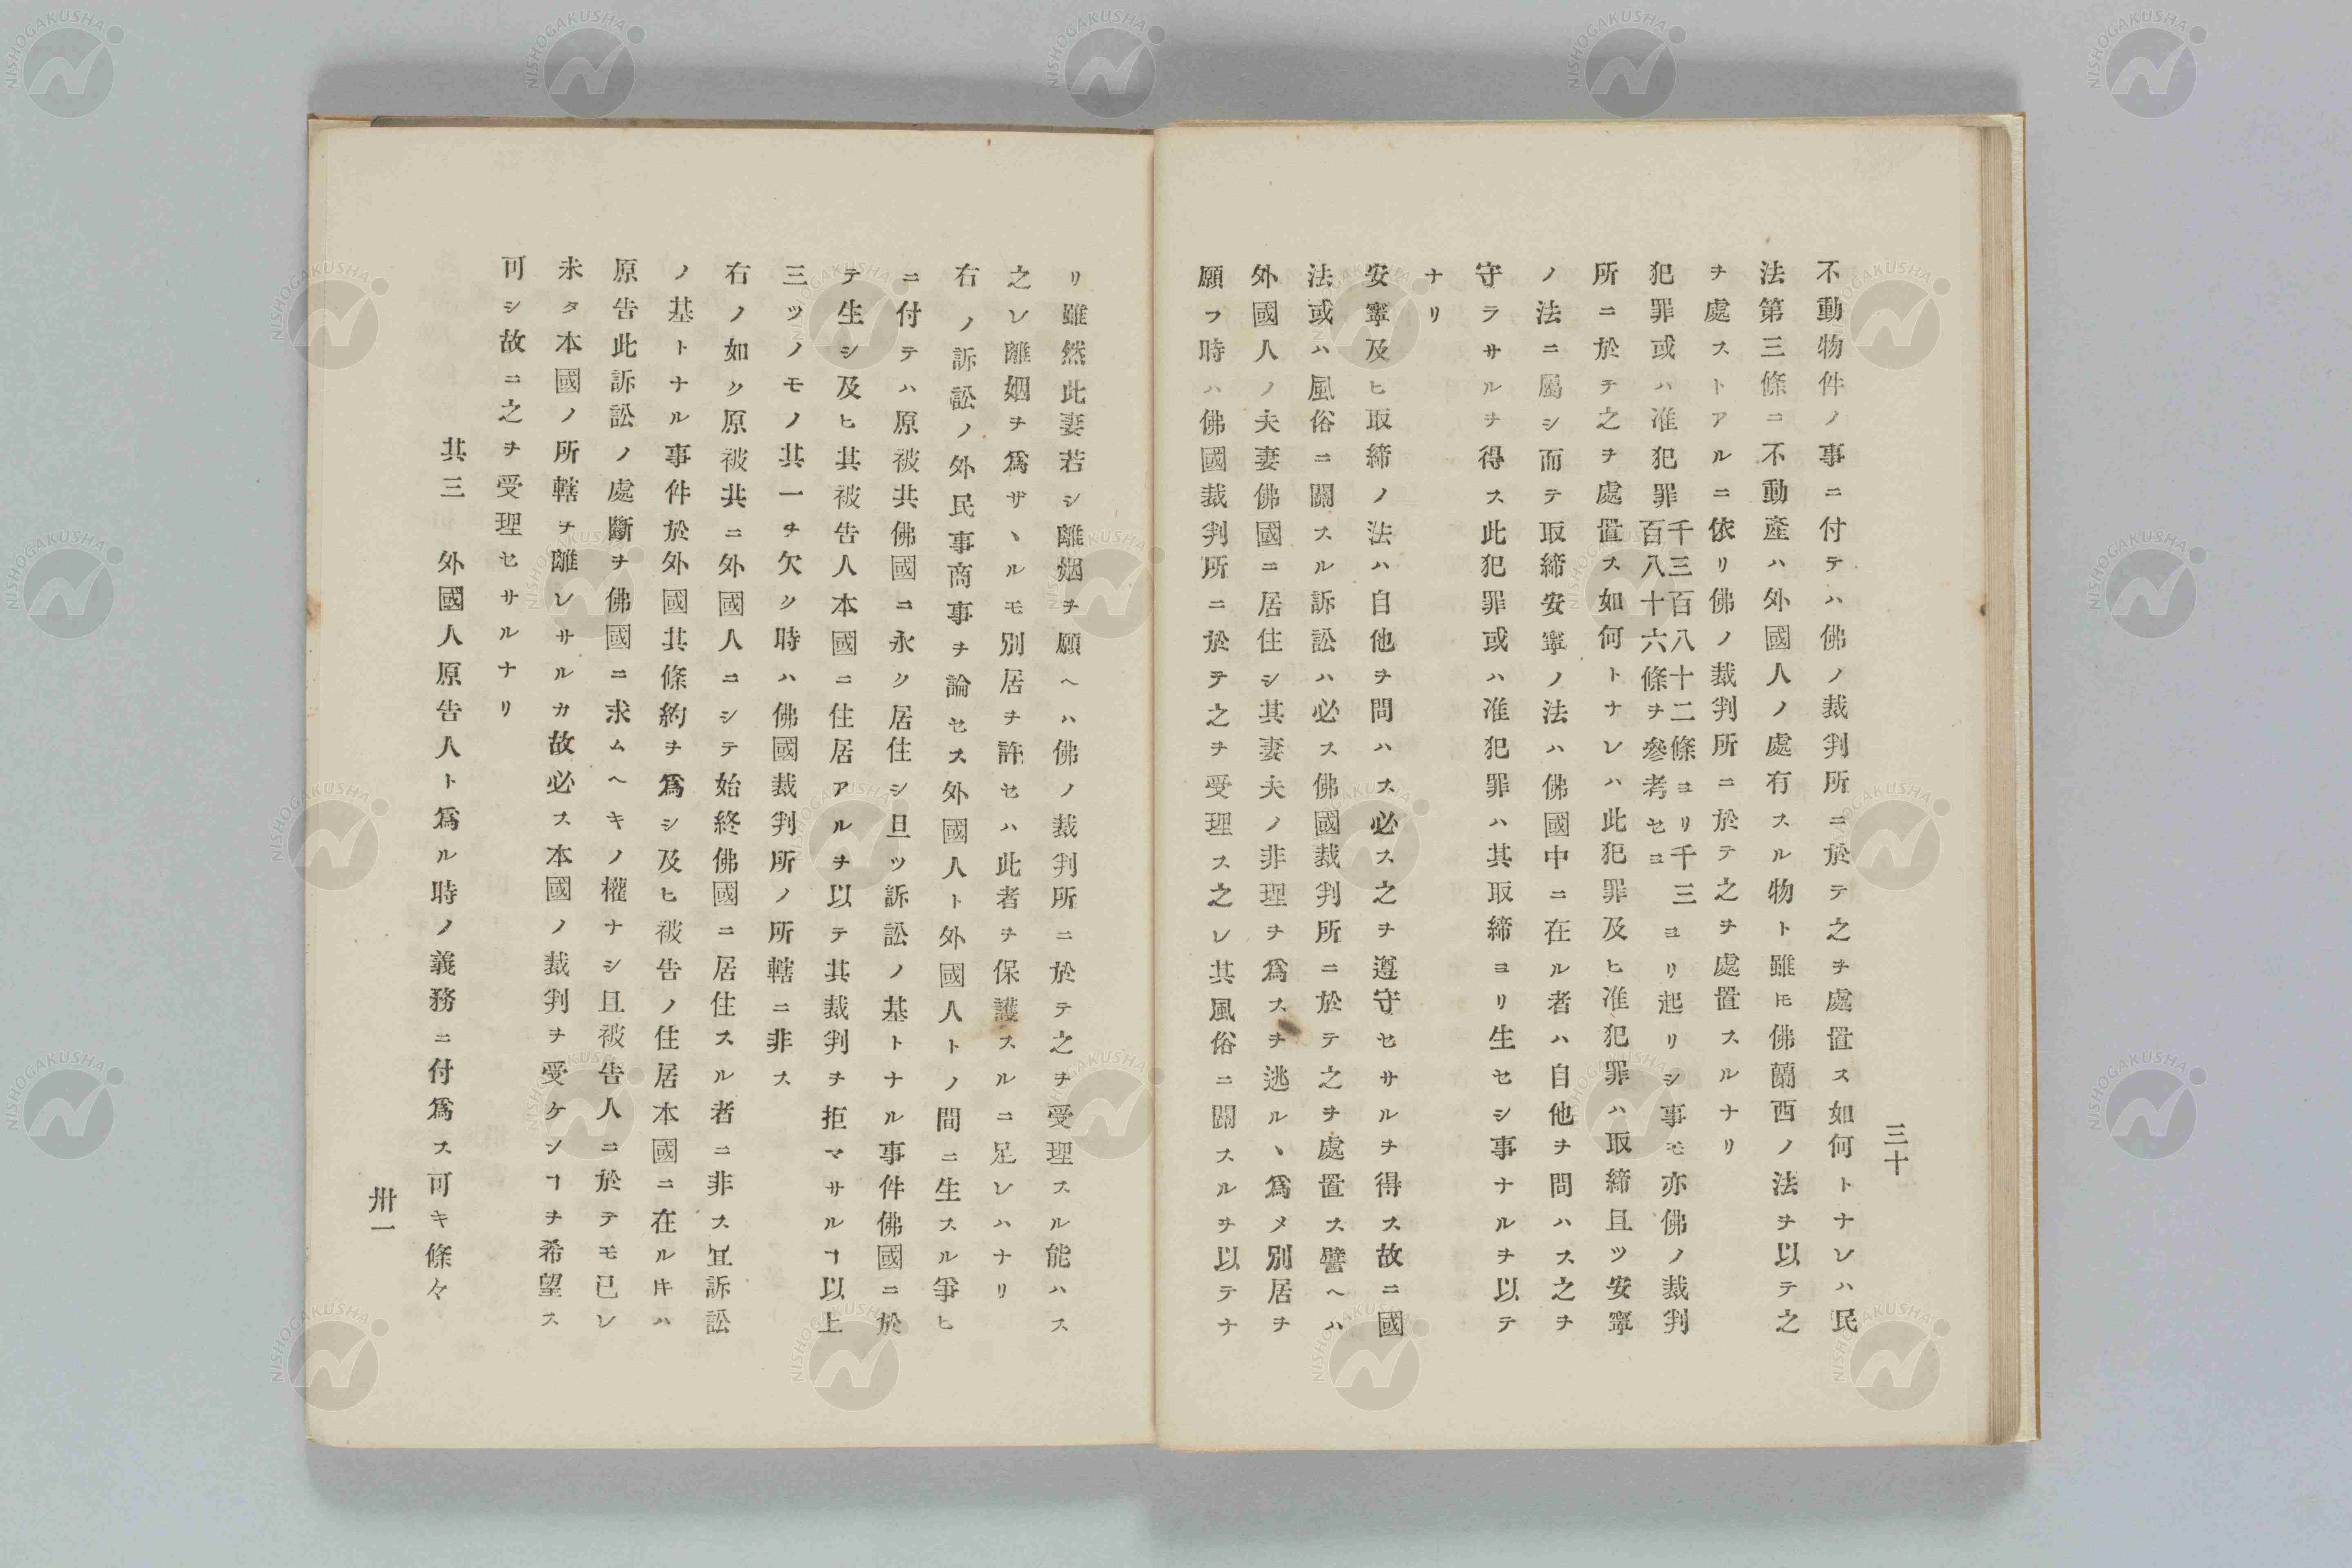 三十
不動物件ノ事ニ付テハ佛ノ裁判所ニ於テ之ヲ處置ス如何トナレハ民
法第三條ニ不動產ハ外國人ノ處有スル物ト雖𪜈佛蘭西ノ法ヲ以テ之
ヲ處ストアルニ依リ佛ノ裁判所ニ於テ之ヲ處置スルナリ
犯罪或ハ准犯罪千三百八十二條ヨリ千三百八十六條ヲ參考セヨヨリ起リシ事モ亦佛ノ裁判
所ニ於テ之ヲ處置ス如何トナレハ此犯罪及ヒ准犯罪ハ取締且ツ安寧
ノ法ニ屬シ而テ取締安寧ノ法ハ佛國中ニ在ル者ハ自他ヲ問ハス之ヲ
守ラサルヲ得ス此犯罪或ハ准犯罪ハ其取締ヨリ生セシ事ナルヲ以テ
ナリ
安寧及ヒ取締ノ法ハ自他ヲ問ハス必ス之ヲ遵守セサルヲ得ス故ニ國
法或ハ風俗ニ關スル訴訟ハ必ス佛國裁判所ニ於テ之ヲ處置ス譬ヘハ
外國人ノ夫妻佛國ニ居住シ其妻夫ノ非理ヲ爲スヲ逃ルヽ爲メ別居ヲ
願フ時ハ佛國裁判所ニ於テ之ヲ受理ス之レ其風俗ニ關スルヲ以テナ
リ雖然此妻若シ離姻ヲ願ヘハ佛ノ裁判所ニ於テ之ヲ受理スル能ハス
之レ離姻ヲ爲ザヽルモ別居ヲ許セハ此者ヲ保護スルニ足レハナリ
右ノ訴訟ノ外民事商事ヲ論セス外國人ト外國人トノ間ニ生スル爭ヒ
ニ付テハ原被共佛國ニ永ク居住シ且ツ訴訟ノ基トナル事件佛國ニ於
テ生シ及ヒ其被告人本國ニ住居アルヲ以テ其裁判ヲ拒マサルヿ以上
三ツノモノ其一ヲ欠ク時ハ佛國裁判所ノ所轄ニ非ス
右ノ如ク原被共ニ外國人ニシテ始終佛國ニ居住スル者ニ非ス且訴訟
ノ基トナル事件於外國其條約ヲ爲シ及ヒ被告ノ住居本國ニ在ル𪜈ハ
原告此訴訟ノ處斷ヲ佛國ニ求ムヘキノ權ナシ且被告人ニ於テモ已レ
未タ本國ノ所轄ヲ離レサルカ故必ス本國ノ裁判ヲ受ケンヿヲ希望ス
可シ故ニ之ヲ受理セサルナリ
其三 外國人原告人ト爲ル時ノ義務ニ付爲ス可キ條々
卅一